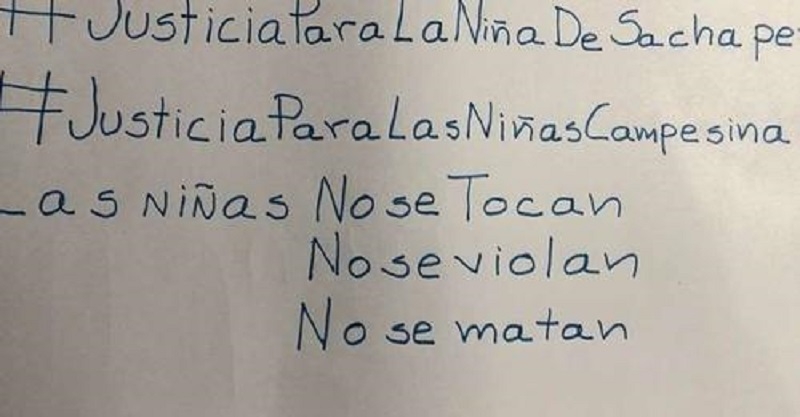 #JusticiaParaLaNiñaDeSachape
#JusticiaParaLasNiñasCampesina
Las Niñas No se Tocan
No se violan
No se matan